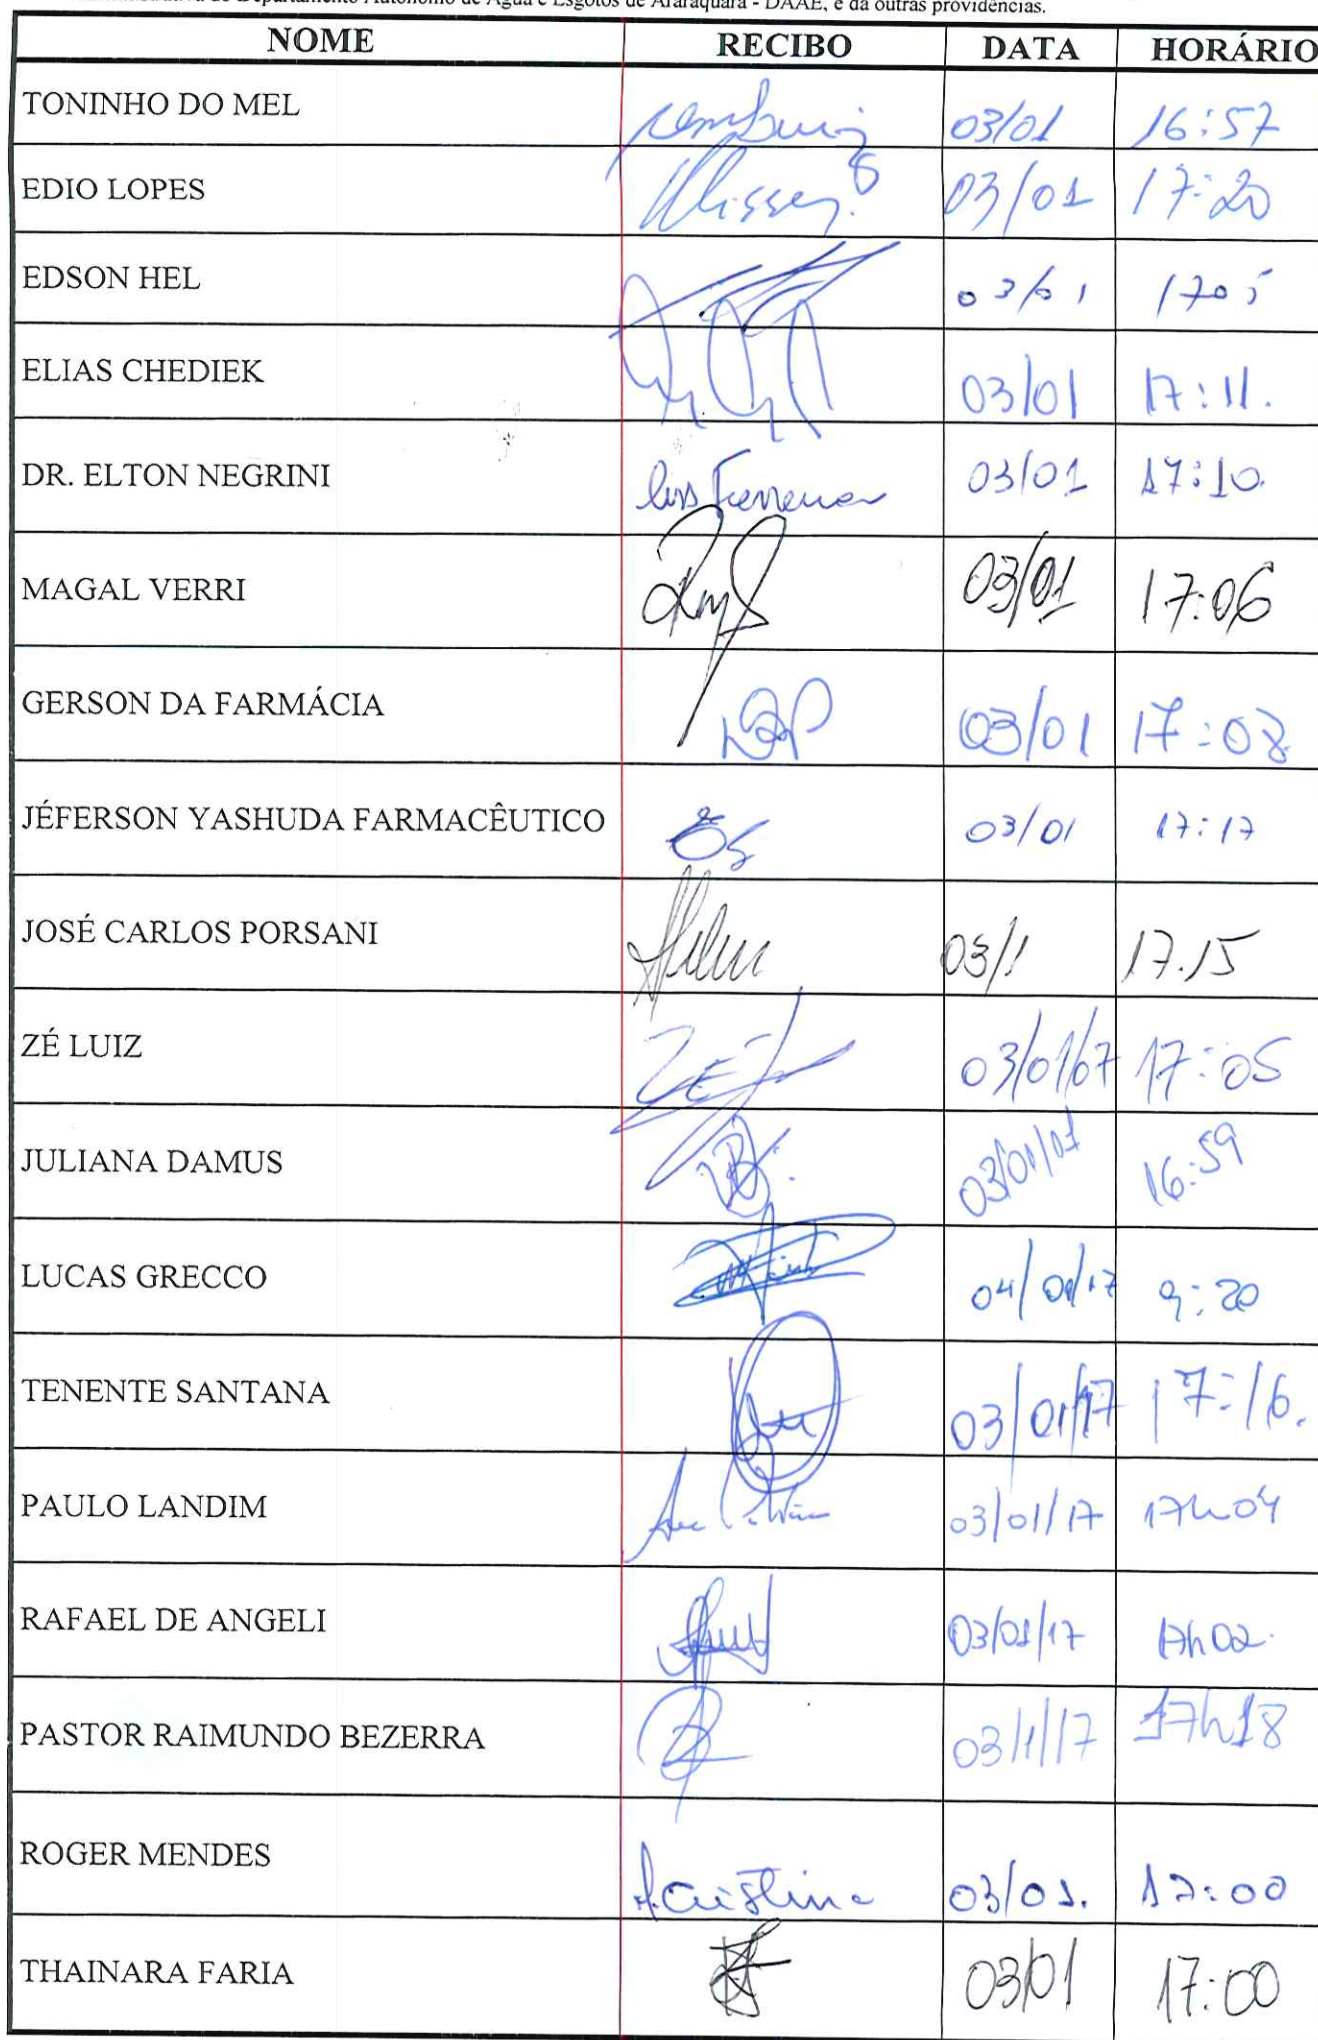 do Departamento Autônomo de Água e Esgotos de Araraquara - DAAE, e dá outras providências.
NOME RECIBO DATA HORÁRIO
TONINHO DO MEL 03/01 16:57
EDIO LOPES 03/01 17:20
EDSON HEL 03/01 1705
ELIAS CHEDIEK 03/01 17:11.
DR. ELTON NEGRINI 03/01 17:10.
MAGAL VERRI 03/01 17:06
GERSON DA FARMÁCIA 03/01 17:08
JÉFERSON YASHUDA FARMACÊUTICO 03/01 17:17
JOSÉ CARLOS PORSANI 03/1 17.15
ZÉ LUIZ ZÉ 03/01/07 17:05
JULIANA DAMUS 03/01/01 16:59
LUCAS GRECCO 04/01/17 9:20
TENENTE SANTANA 03/01/17 17:16.
PAULO LANDIM 03/01/17 17h04
RAFAEL DE ANGELI 03/01/17 17h02.
PASTOR RAIMUNDO BEZERRA 03/1/17 17h18
ROGER MENDES 03/01. 17:00
THAINARA FARIA 03/01 17:00